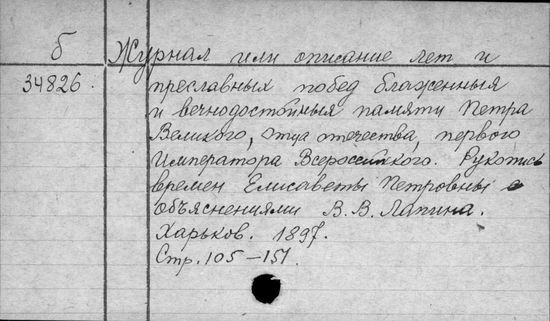 б Журнал или описание лет и
34826. преславных побед блаженныя
и вечнодостойныя памяти Петра
Великого, отца отечества, первого
Императора Всероссийского. Рукопись
времен Елисаветы Петровны с
объяснениями В. В. Лапина.
Харьков. 1897.
Стр. 105-151.